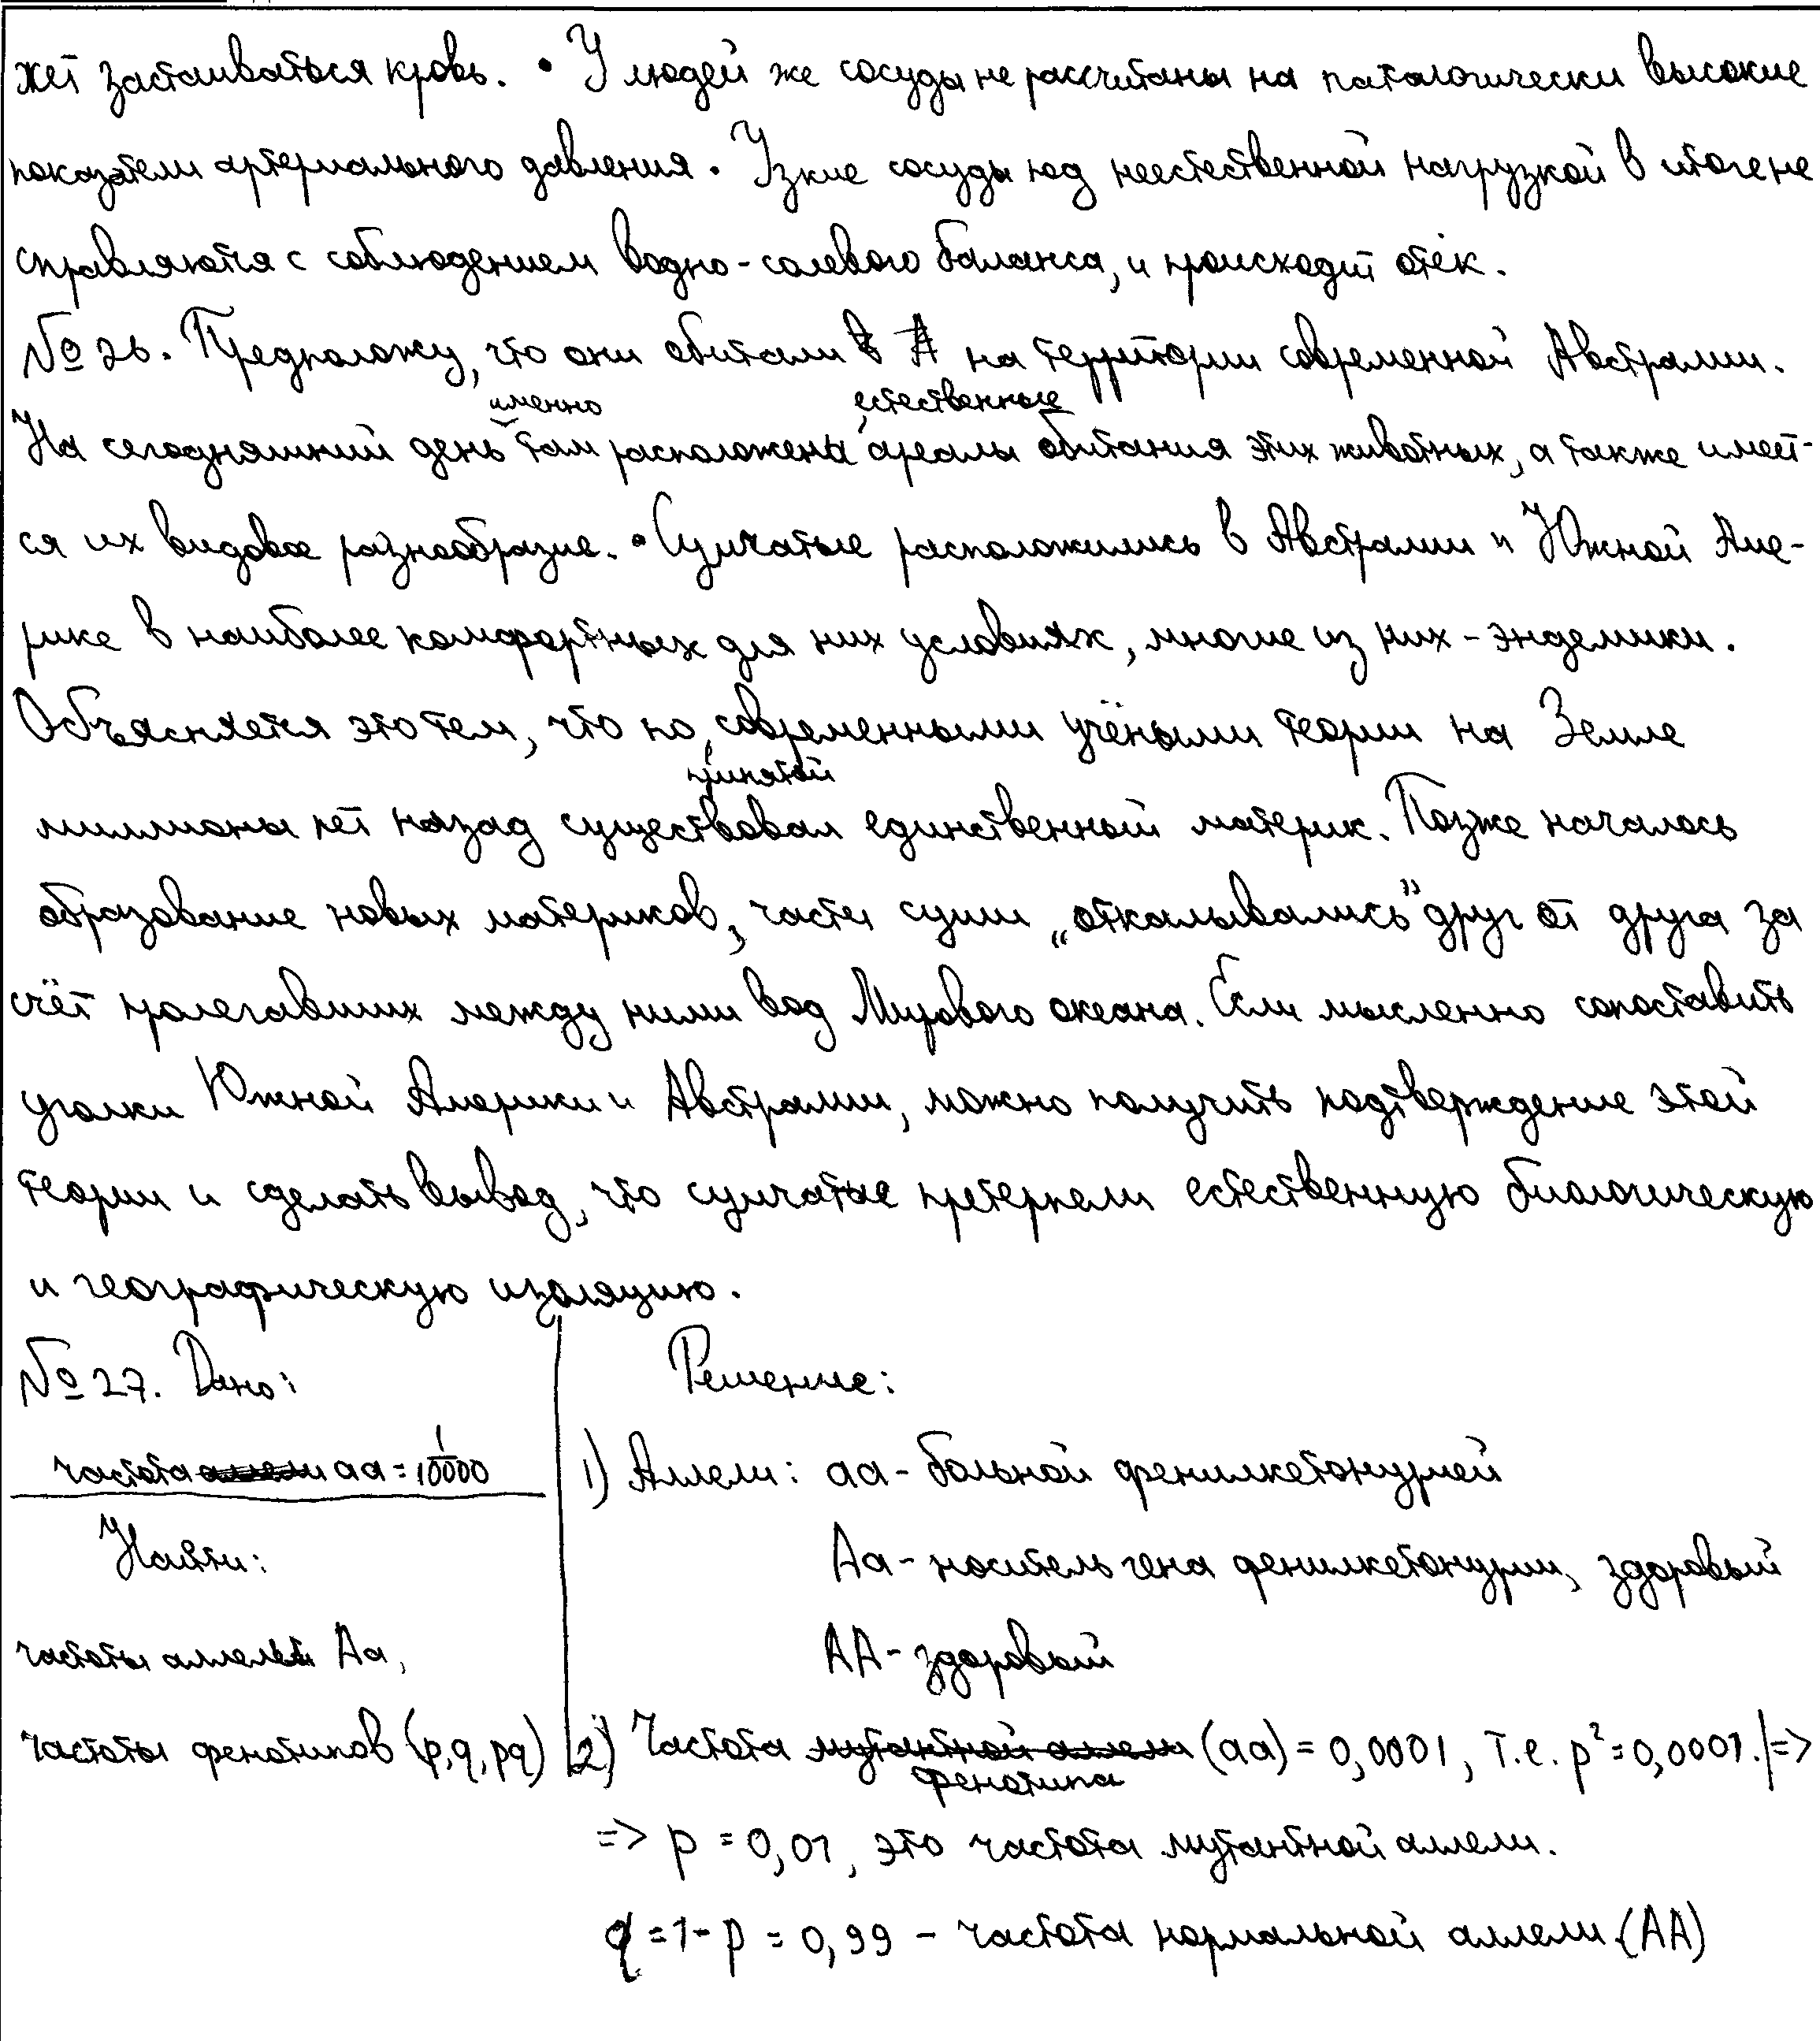 жет застаиваться кровь. • У людей же сосуды не рассчитаны на патологически высокие
показатели артериального давления. Узкие сосуды под неестественной нагрузкой в итоге не
справляются с соблюдением водно-солевого баланса, и происходит отёк.
№ 26. Предположу, что они обитали на территории современной Австралии.
На сегодняшний день именно там расположены естественные ареалы обитания этих животных, а также имеет-
ся их видовое разнообразие. • Сумчатые расположились в Австралии и Южной Аме-
рике в наиболее комфортных для них условиях, многие из них - эндемики.
Объясняется это тем, что по принятой современными учёными теории на Земле
миллионы лет назад существовал единственный материк. Позже началось
образование новых материков, части суши „откалывались" друг от друга за
счёт пролегавших между ними вод Мирового океана. Если мысленно сопоставить
уголки Южной Америки и Австралии, можно получить подтверждение этой
теории и сделать вывод, что сумчатые претерпели естественную биологическую
и географическую изоляцию.
№ 27. Дано:
частота аа = 1/10000
Найти:
частоты аллелей Аа,
частоты фенотипов (p, q, pq)
Решение:
1) Аллели: аа - больной фенилкетонурией
Аа - носитель гена фенилкетонурии, здоровый
АА - здоровый
2) Частота фенотипа (аа) = 0,0001, т.е. p² = 0,0001. =>
=> p = 0,01, это частота мутантной аллели.
q = 1 - p = 0,99 - частота нормальной аллели (АА)